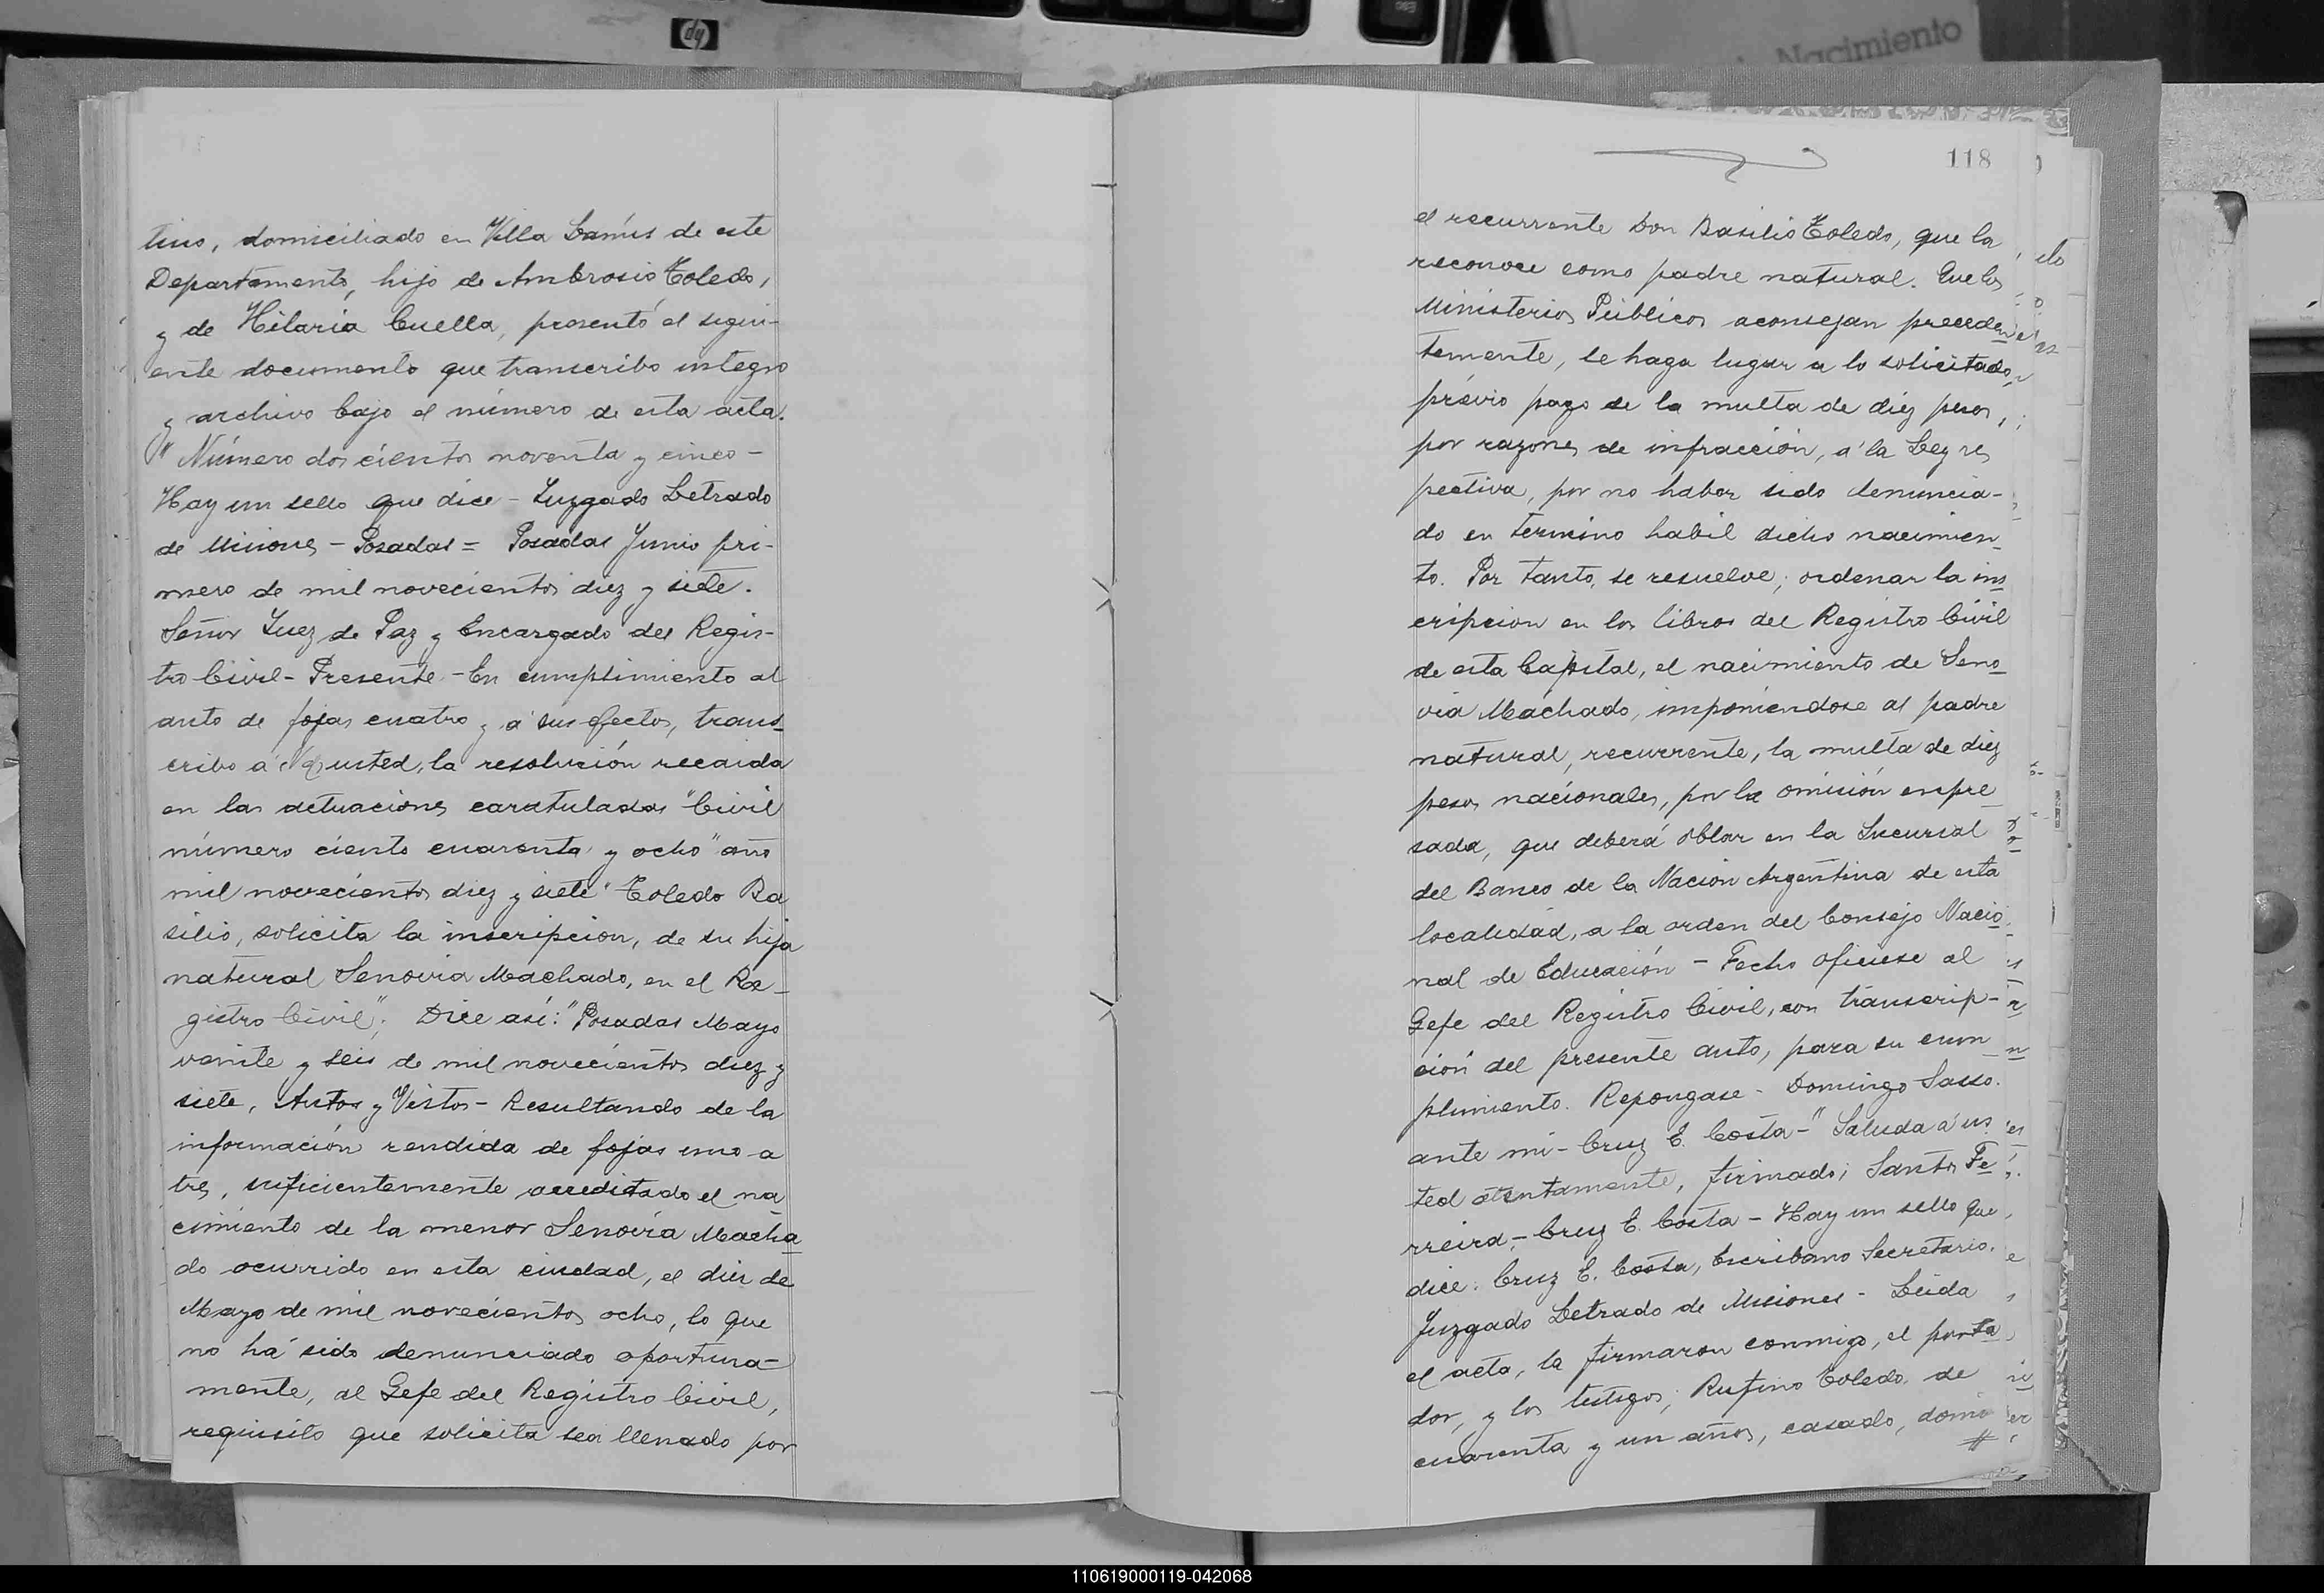 Nacimiento
hp
tino, domiciliado en Villa Lanús de este
Departamento, hijo de Ambrosio Toledo,
y de Hilaria Cuella, presentó el sigui-
ente documento que transcribo integro
y archivo bajo el número de esta acta.
" Número dos cientos noventa y cinco -
Hay un sello que dice - Juzgado Letrado
de Misiones - Posadas = Posadas Junio pri-
mero de mil novecientos diez y siete.
Señor Juez de Paz y Encargado del Regis-
tro Civil - Presente - En cumplimiento al
auto de fojas cuatro y á sus efectos, trans
cribo á usted, la resolución recaida
en las actuaciones caratuladas "Civil
número ciento cuarenta y ocho" año
mil novecientos diez y siete" Toledo Ba
silio, solicita la inscripcion, de su hija
natural Senovia Machado, en el Re-
gistro Civil"; Dice así: "Posadas Mayo
veinte y seis de mil novecientos diez y
siete, Autos y Vistos - Resultando de la
información rendida de fojas uno a
tres, suficientemente acreditado el na
cimiento de la menor Senovia Macha
do ocurrido en esta ciudad, el diez de
Mayo de mil novecientos ocho, lo que
no há sido denunciado oportuna-
mente, al Gefe del Registro Civil,
requisito que solicita sea llenado por
118
el recurrente Don Basilio Toledo, que la
reconoce como padre natural. Que los
Ministerios Públicos aconsejan preceden
temente, se haga lugar a lo solicitado,
prévio pago de la multa de diez pesos,
por razones de infracción, á la Ley res
pectiva, por no haber sido denuncia-
do en término habil dicho nacimien
to. Por tanto, se resuelve; ordenar la ins
cripcion en los libros del Registro Civil
de esta Capital, el nacimiento de Seno
via Machado, imponiendose al padre
natural, recurrente, la multa de diez
pesos nacionales, por la omisión expre
sada, que deberá oblar en la Sucursal
del Banco de la Nacion Argentina de esta
localidad, a la orden del Consejo Nacio
nal de Educación - Fecho ofíciese al
Gefe del Registro Civil, con transcrip-
ción del presente auto, para su cum
plimiento. Repongase - Domingo Sasso.
ante mí - Cruz E. Costa -" Saluda á us
ted atentamente, firmado; Santos Fe
rreira, - Cruz E. Costa - Hay un sello que
dice: Cruz E. Costa, Escribano Secretario.
Juzgado Letrado de Misiones - Leida
el acta, la firmaron conmigo, el porta
dor, y los testigos; Rufino Toledo, de
cuarenta y un años, casado, domi
110619000119-042068